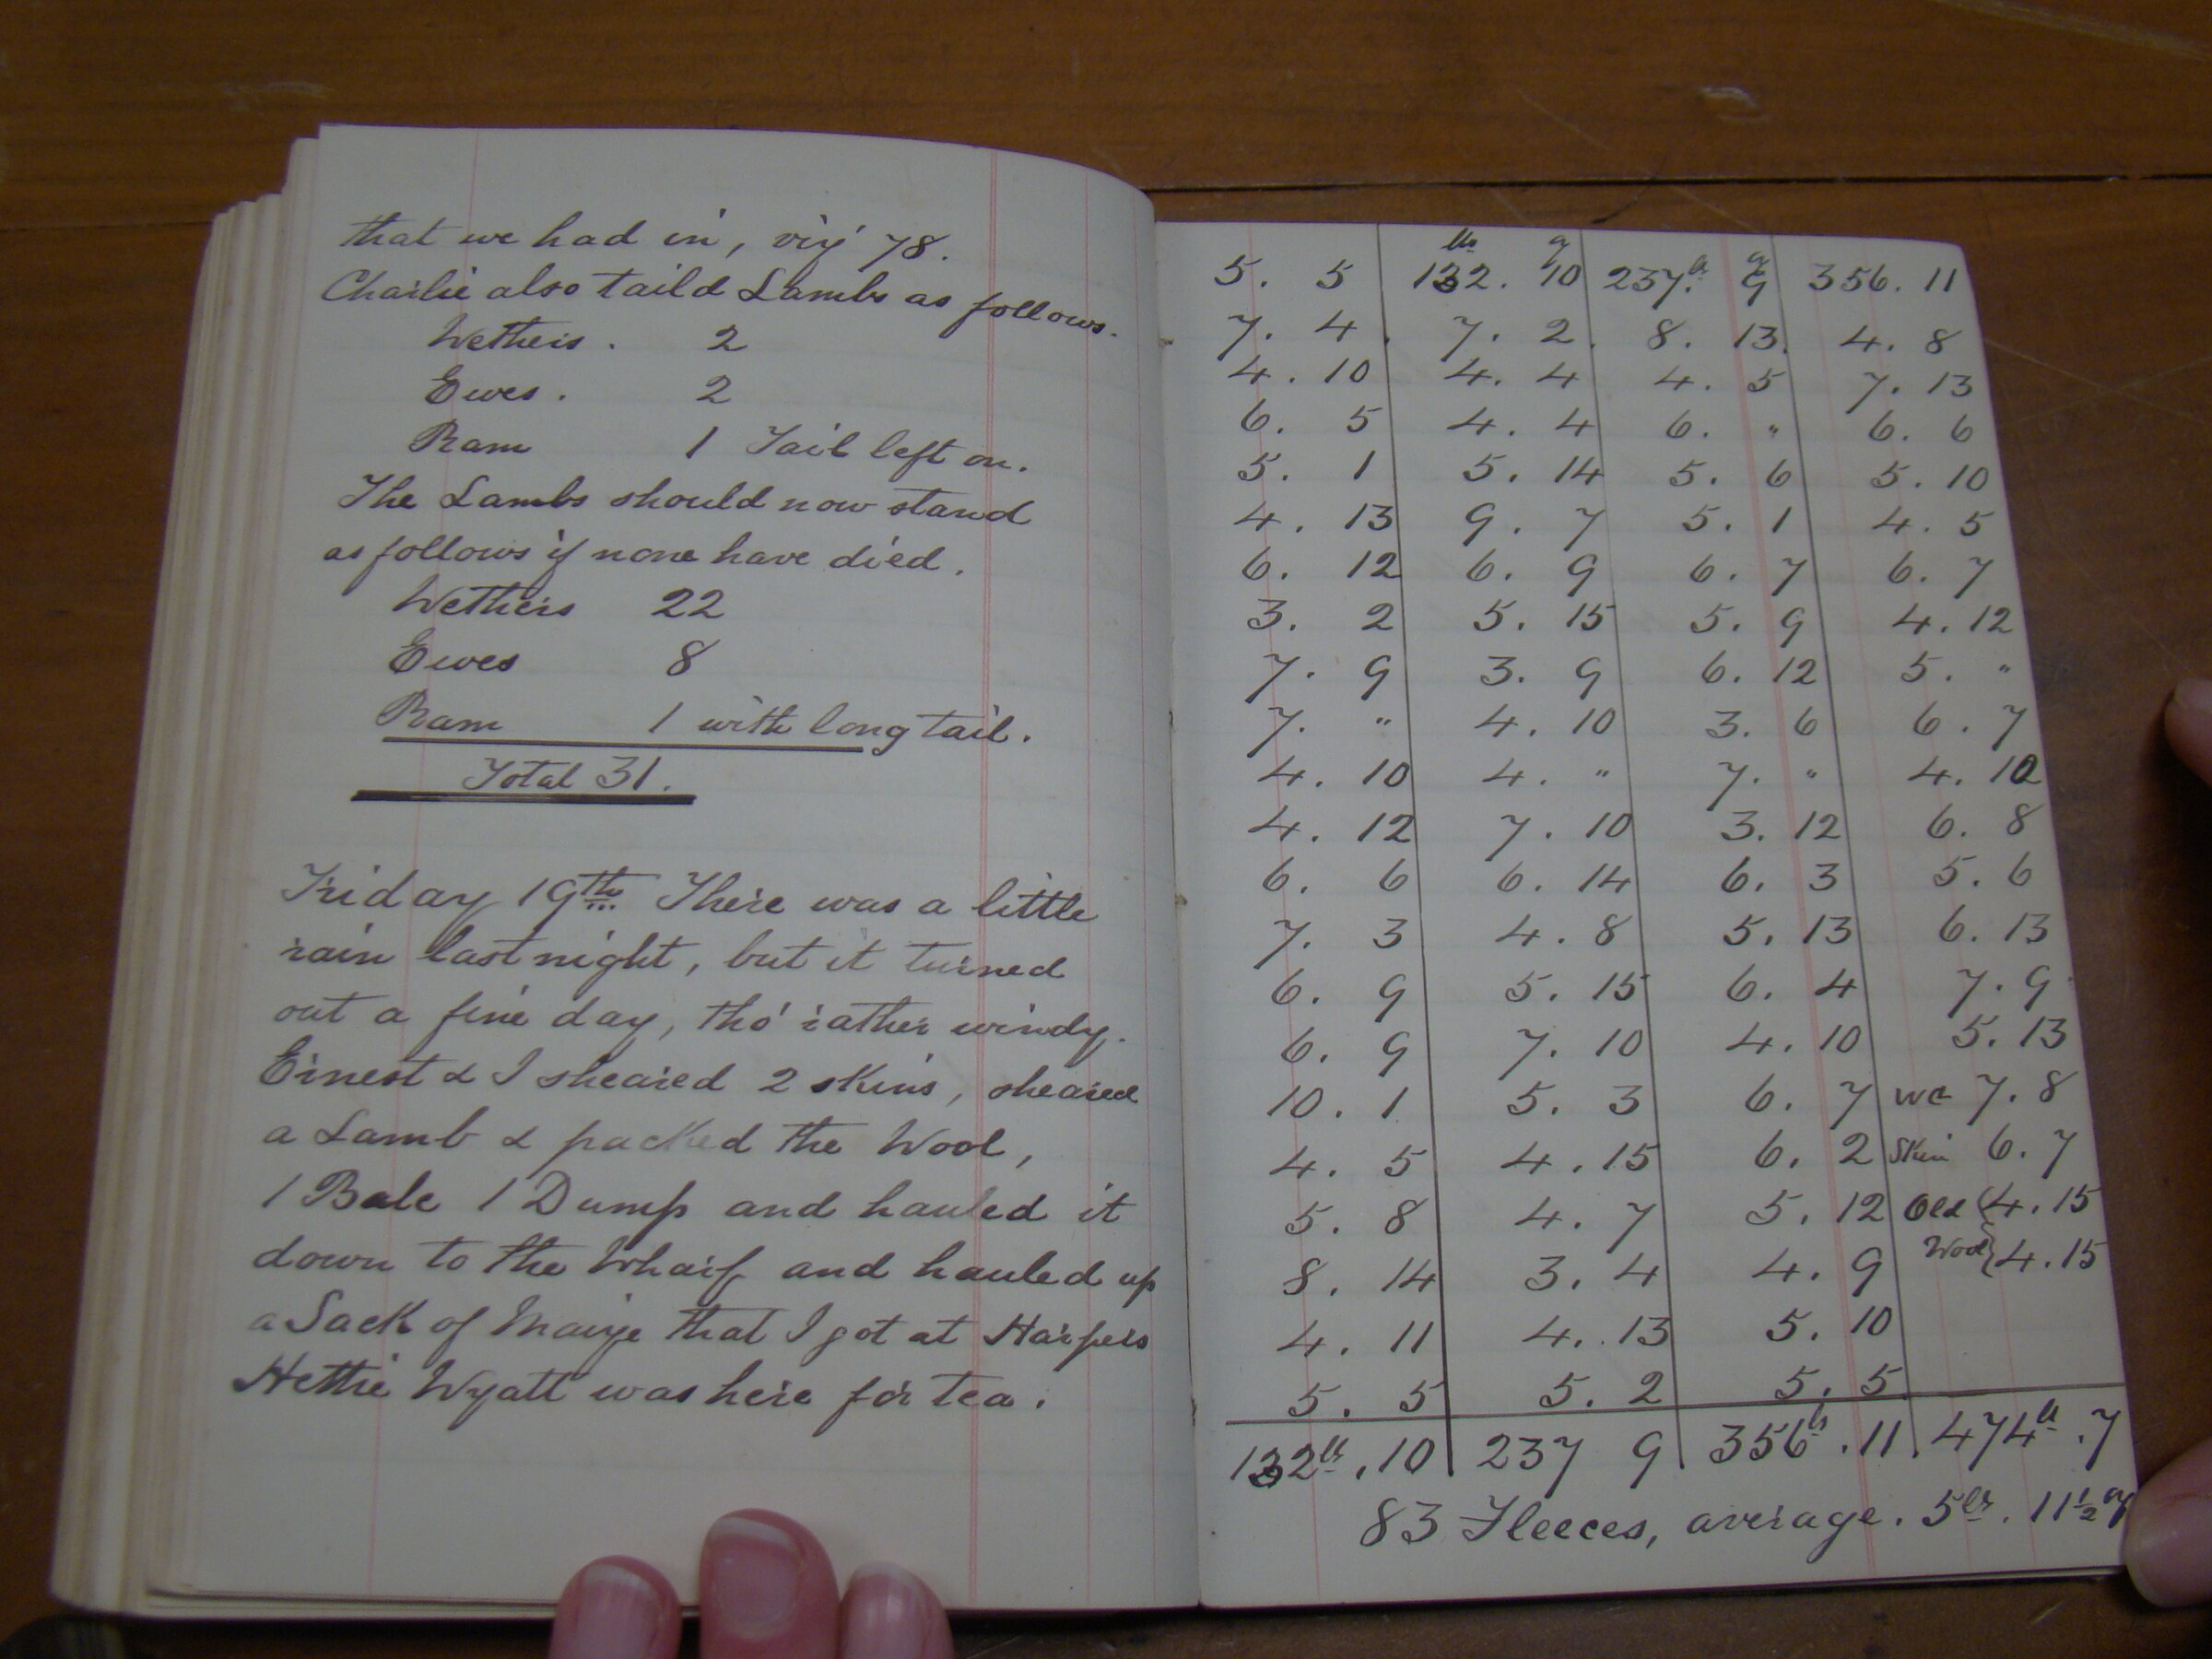 that we had in, viz 78.
Charlie also taild Lambs as follows.
Wethers . 2
Ewes . 2
Ram 1 Tail left on.
The Lambs should now stand
as follows if none have died.
Wethers 22
Ewes 8
Ram 1 with long tail.
Total 31.
Friday 19th There was a little
rain last night, but it turned
out a fine day, tho' rather windy.
Ernest & I sheared 2 skins, sheared
a Lamb & packed the Wool,
1 Bale 1 Dump and hauled it
down to the Wharf and hauled up
a Sack of Maize that I got at Harpers
Hettie Wyatt was here for tea.
lbs oz lb oz
5. 5 132. 10 237. 9 356. 11
7. 4. 7. 2. 8. 13. 4. 8
4. 10 4. 4 4. 5 7. 13
6. 5 4. 4 6. " 6. 6
5. 1 5. 14 5. 6 5. 10
4. 13 9. 7 5. 1 4. 5
6. 12 6. 9 6. 7 6. 7
3. 2 5. 15 5. 9 4. 12
7. 9 3. 9 6. 12 5. "
7. " 4. 10 3. 6 6. 7
4. 10 4. " 7. " 4. 10
4. 12 7. 10 3. 12 6. 8
6. 6 6. 14 6. 3 5. 6
7. 3 4. 8 5. 13 6. 13
6. 9 5. 15 6. 4 7. 9
6. 9 7. 10 4. 10 5. 13
10. 1 5. 3 6. 7 7. 8
4. 5 4. 15 6. 2 Skin 6. 7
5. 8 4. 7 5. 12 Old 4. 15
8. 14 3. 4 4. 9 Wool 4. 15
4. 11 4. 13 5. 10
5. 5 5. 2 5. 5
132lb. 10 237 9 356lb. 11. 474lb. 7
83 Fleeces, average. 5lb. 11½ oz